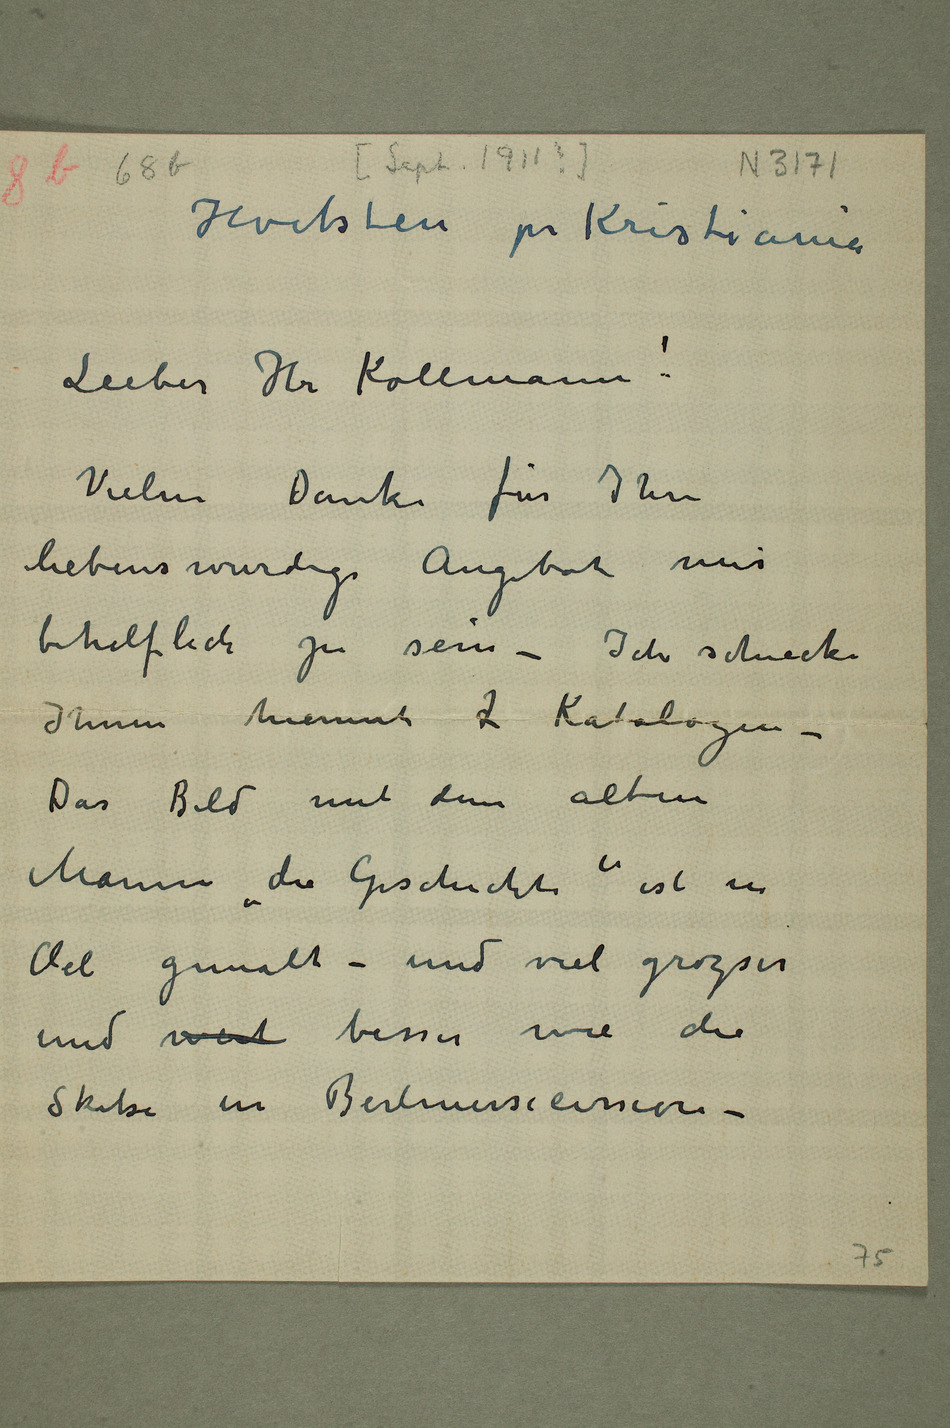 8 b 68b [Sept. 1911?] N 3171
Hvitsten pr Kristiania
Lieber Hr Kollmann!
Vielen Danke für Ihre
liebenswurdige Angebot mir
behilflich zu sein – Ich schiecke
Ihnen hiermit 2 Katalogen –
Das Bild mit dem alten
Mannen „die Geschichte“ ist in
Oel gemalt – und viel grøzser
und weit besser wie die
Skitse in Berlinersecession –
75